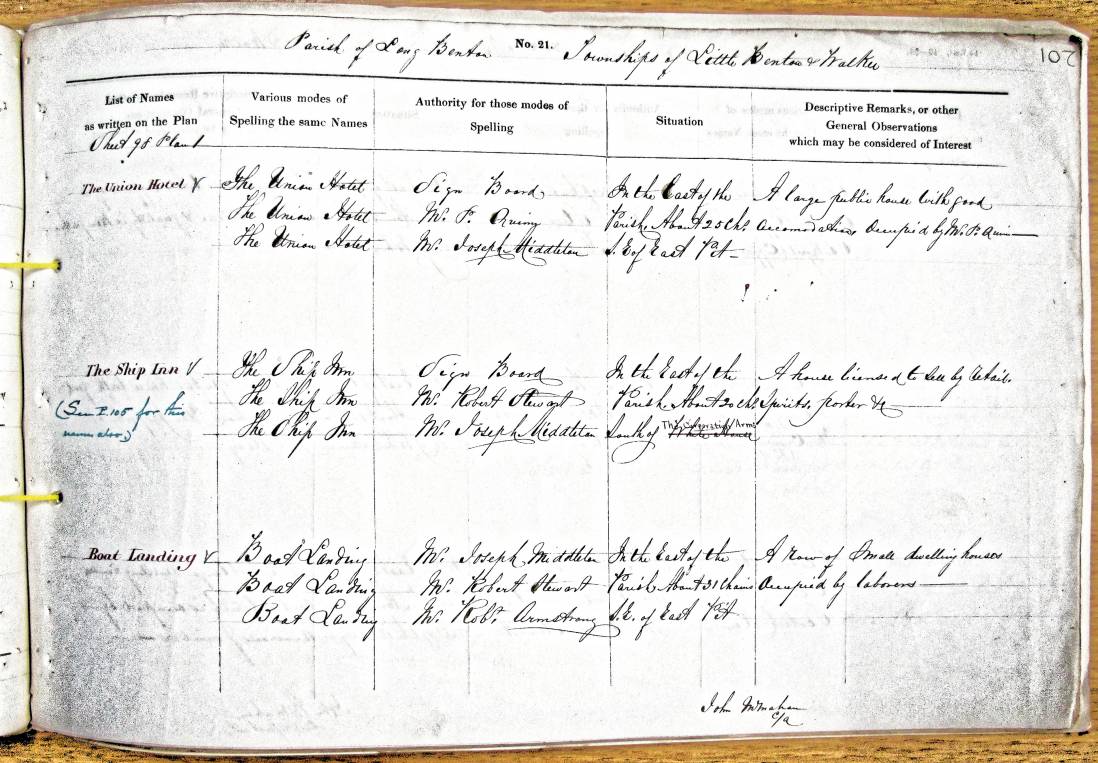 Parish of Long Benton No. 21. Townships of Little Benton & Walker
107
List of Names
as written on the Plan
Various modes of
Spelling the same Names
Authority for those modes of
Spelling
Situation
Descriptive Remarks, or other
General Observations
which may be considered of Interest
Sheet 98 Plan 1
The Union Hotel The Union Hotel Sign Board In the East of the A large public house with good
The Union Hotel Mr. P. Quinn Parish. About 25 Chs. accomodation, Occupied by Mr. P. Quinn
The Union Hotel Mr. Joseph Middleton S.E. of East Pit
The Ship Inn The Ship Inn Sign Board In the East of the A house licensed to sell by retail.
(See P. 105 for this The Ship Inn Mr. Robert Stewart Parish. About 20 chs. Spirits, porter &c
name also) The Ship Inn Mr. Joseph Middleton South of The Corporation Arms White House
Boat Landing Boat Landing Mr. Joseph Middleton In the East of the A row of small dwelling houses
Boat Landing Mr. Robert Stewart Parish About 31 Chains Occupied by laborers
Boat Landing Mr. Robt. Armstrong S.E. of East Pit
John McMahon
c/a